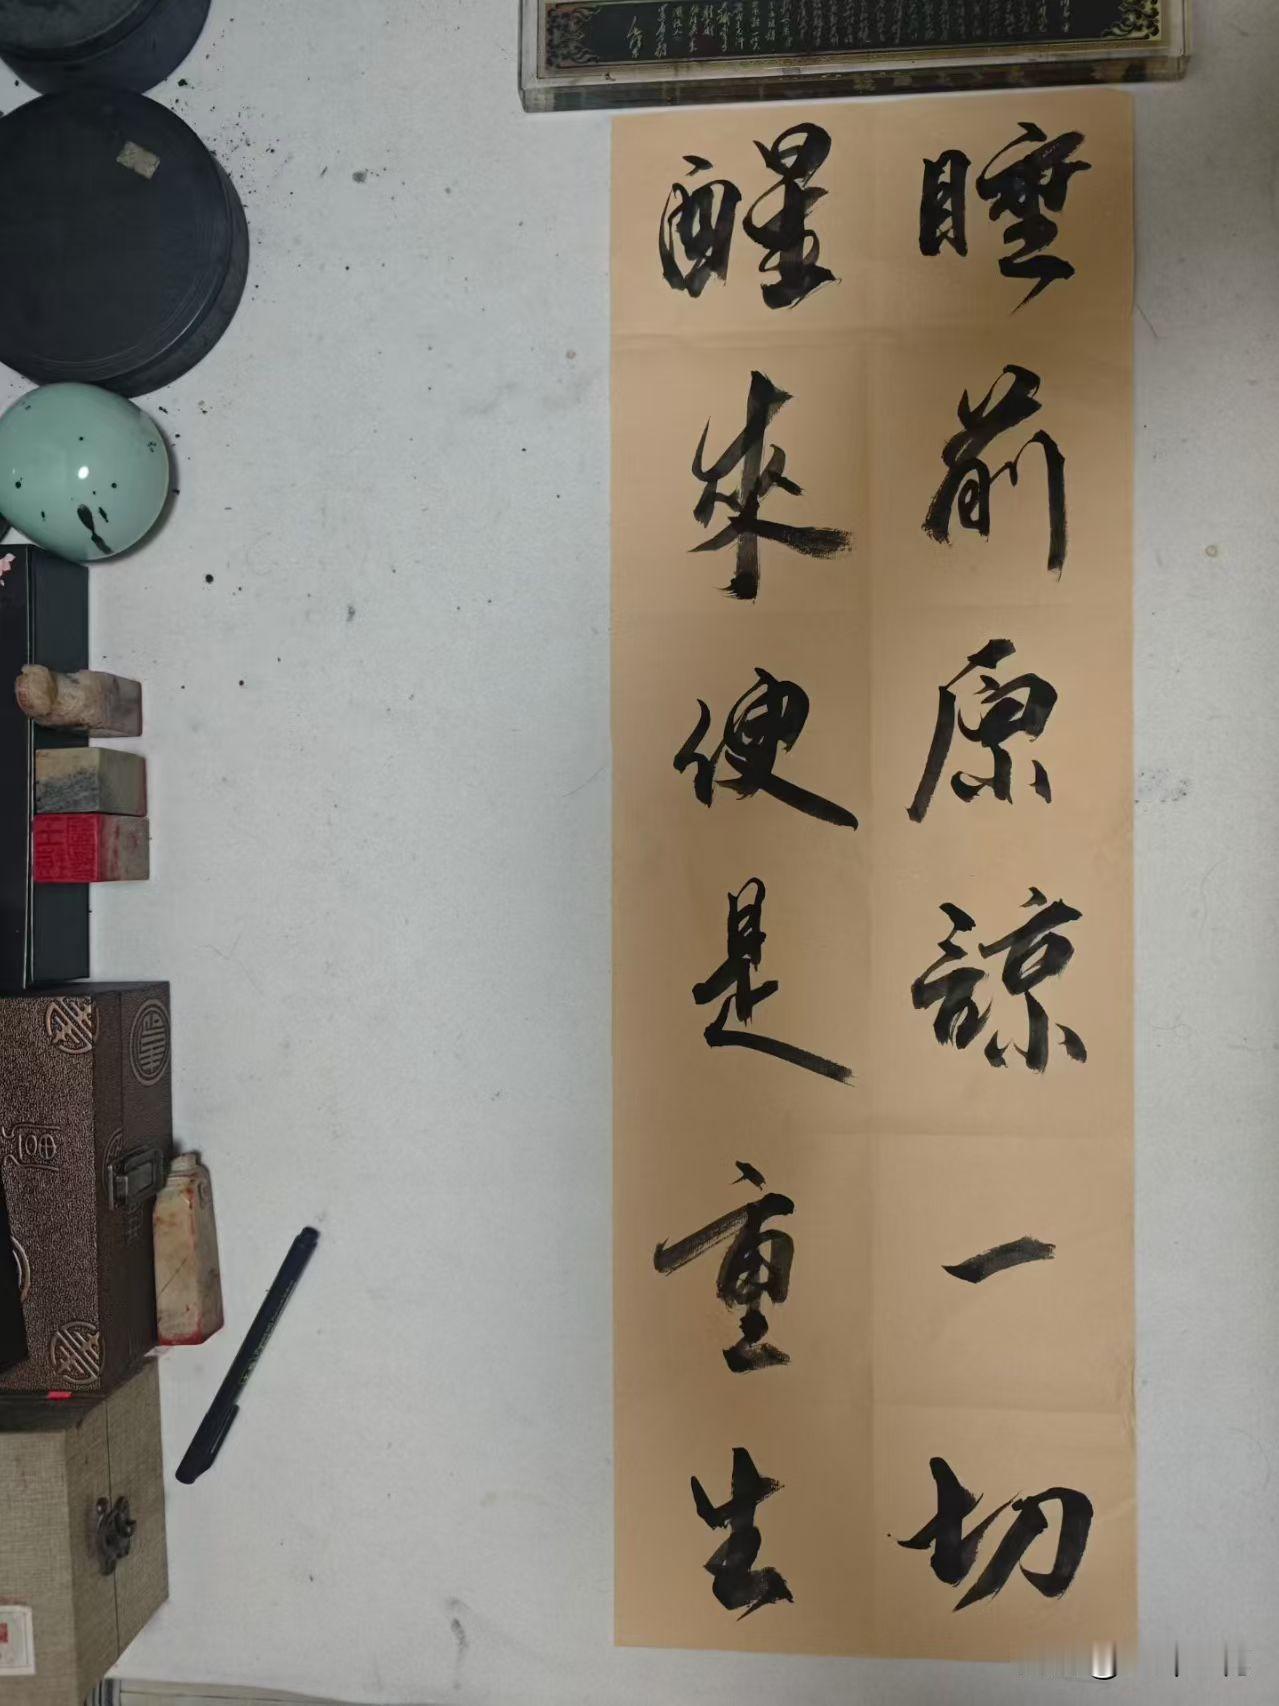 睡前原諒一切
醒來便是重生